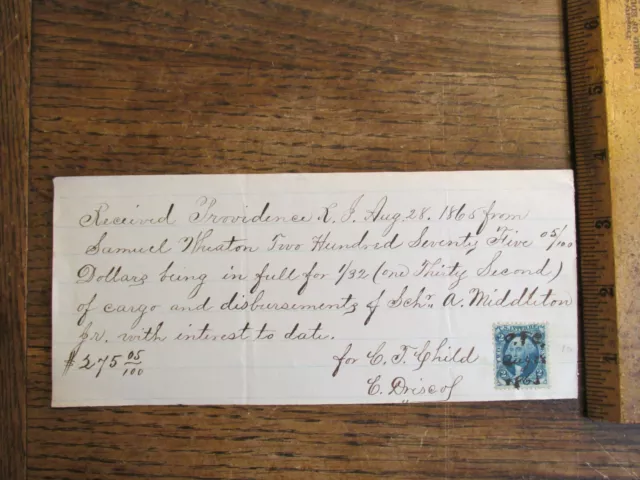 Received Providence R. I. Aug. 28. 1865 from
Samuel Wheaton Two Hundred Seventy Five 05/100
Dollars being in full for 1/32 (one Thirty Second)
of cargo and disbursements of Schr. A. Middleton
jr. with interest to date.
$275 05/100 for C. T. Child
C. Driscol
1865
6
5
4
3
2